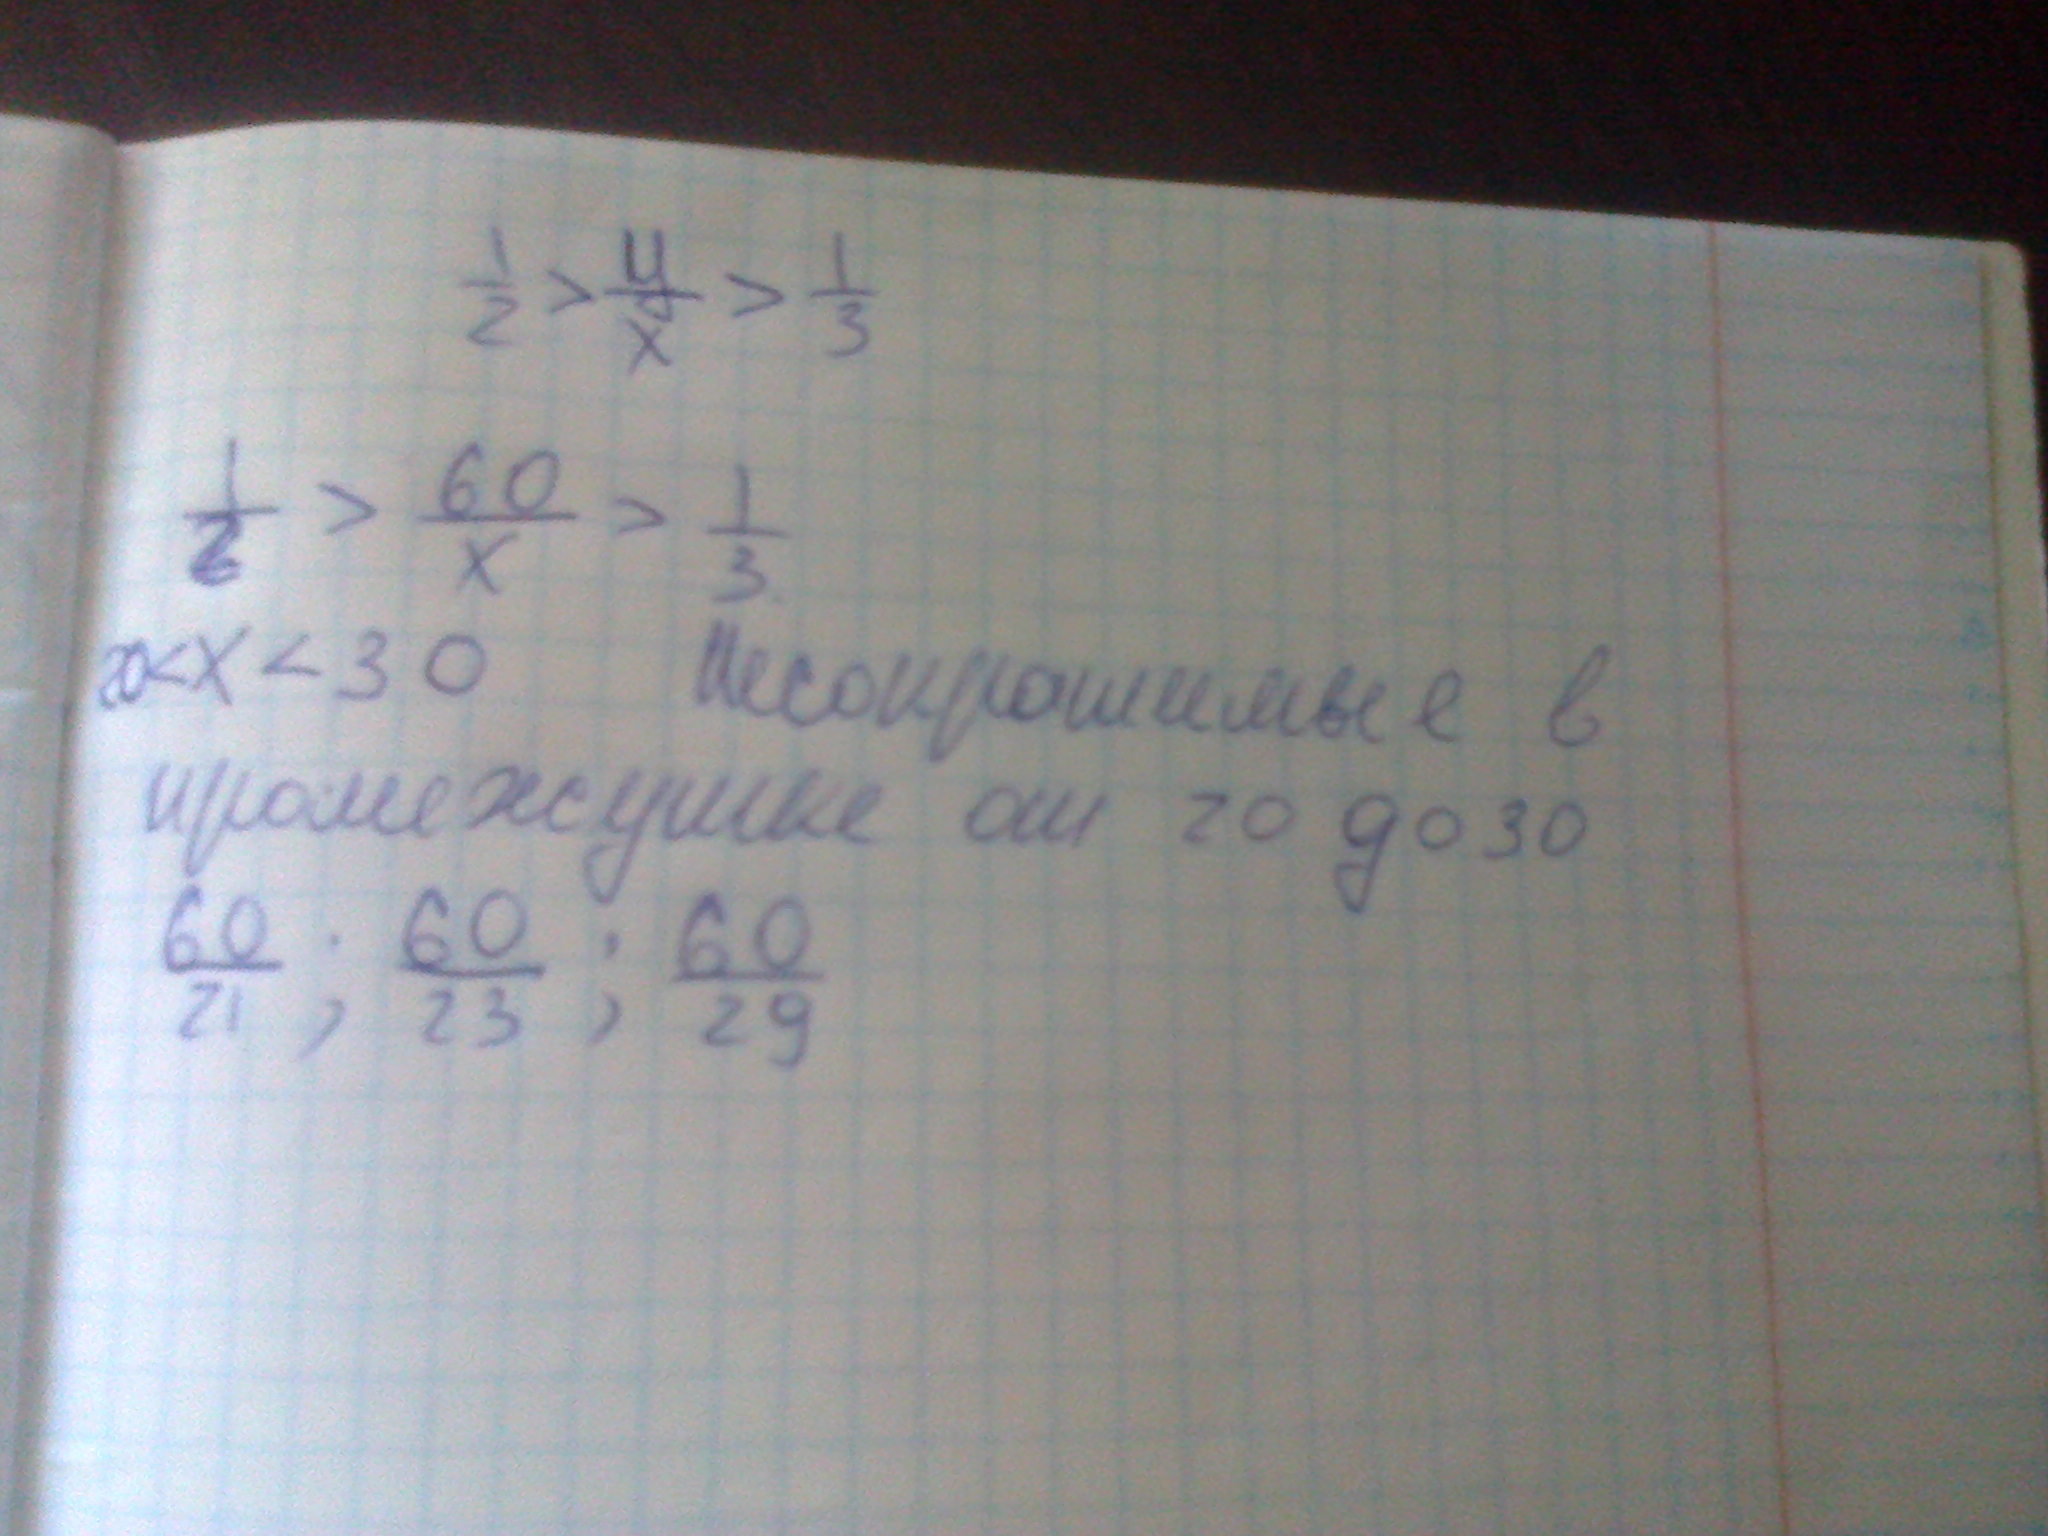 1/2 > y/x > 1/3
1/2 > 60/x > 1/3
20<x<30 Несократимые в
промежутке от 20 до 30
60/21; 60/23; 60/29